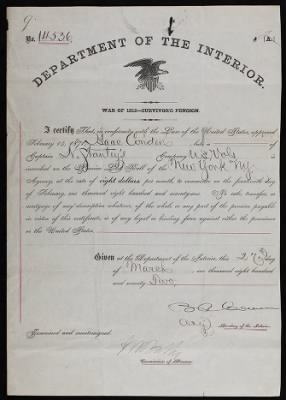 9
No. 14,536.
DEPARTMENT OF THE INTERIOR.
WAR OF 1812—SURVIVOR'S PENSION.
I certify That, in conformity with the Law of the United States, approved
February 14, 1871, Isaac Conden late
Captain N. Company U.S. Vols
is inscribed on the Pension List Roll of the New York N.Y.
Agency, at the rate of eight dollars per month, to commence on the fourteenth day
of February, one thousand eight hundred and seventy-one. No sale, transfer or
mortgage of any description whatever, of the whole or any part of the pension payable
in virtue of this certificate, is of any legal or binding force against either the pensioner
or the United States.
Given at the Department of the Interior this
of March one thousand eight hundred
and seventy Two.
Acting Secretary of the Interior.
Examined and countersigned.
Commissioner of Pensions.